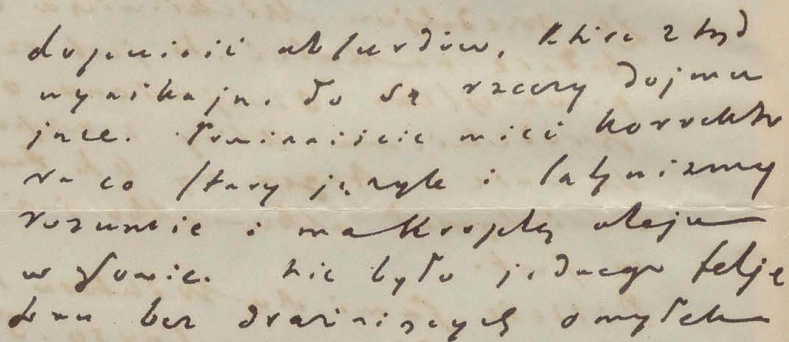 dopuścić absurdów, które z tąd
wynikają. To są rzeczy dojmu
jące. Powinniście mieć korrekto
ra co stary język i latynizmy
rozumie i ma kroplę oleju
w głowie. Nie było jednego felje
tonu bez drażniących omyłek